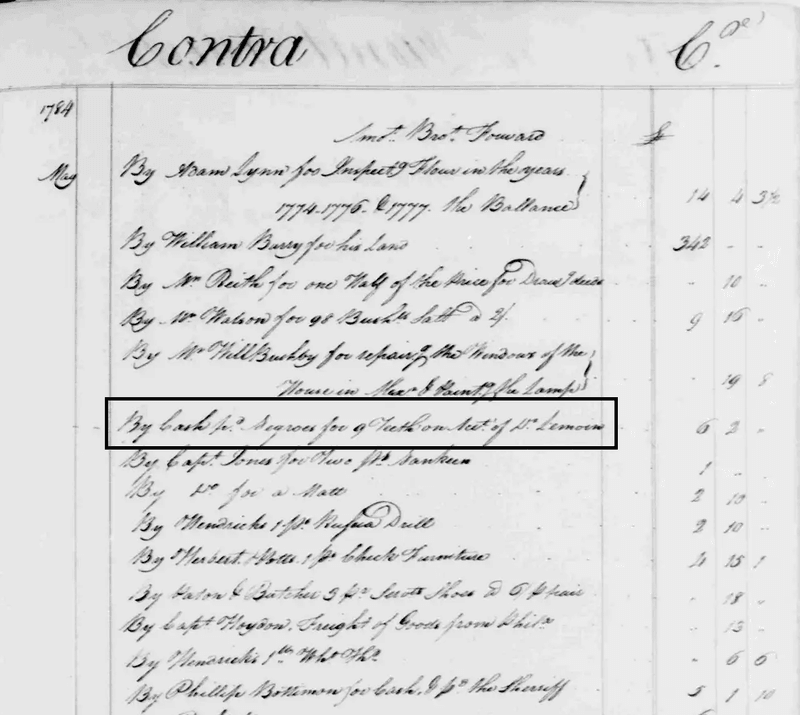 Contra Cr.
1784
Amot. Brot. Forward £
May By Adam Lynn for Inspectg Flour in the years
1774-1776- & 1777. the Ballance 14 4 3½
By William Barry for his Land 342 - -
By Mr Reith for one Half of the Price for Drawg deeds - 10 -
By Mr Watson for 98 Bushls Salt a 2/. 9 16 -
By Mr Will Bushby for repairg the Windows of the
House in Alexa & Paintg the Lamp - 19 8
By Cash pd Negroes for 9 Teeth on Acct of Dr Lemoin 6 2 -
By Capt Jones for Two ps Nankeen 1 - -
By Do for a Matt 2 10 -
By Hendricks 1 ps Russia Drill 2 10 -
By Herbert & Potts 1 ps Check Furniture 4 15 1
By & Butcher 3 pr Shoes a 6/ p pair - 18 -
By Capt Freight of Goods from Phila - 13 -
By Hendricks 1 lb Wht Thd - 6 6
By Phillip Bottimon for Cash & pd the Sherriff 5 1 10